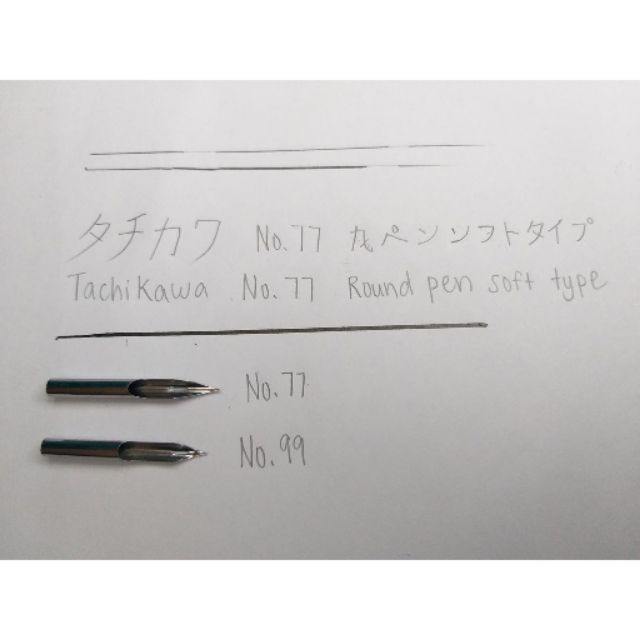 タチカワ No.77 丸ペンソフトタイプ
Tachikawa No.77 Round pen soft type
No.77
No.99